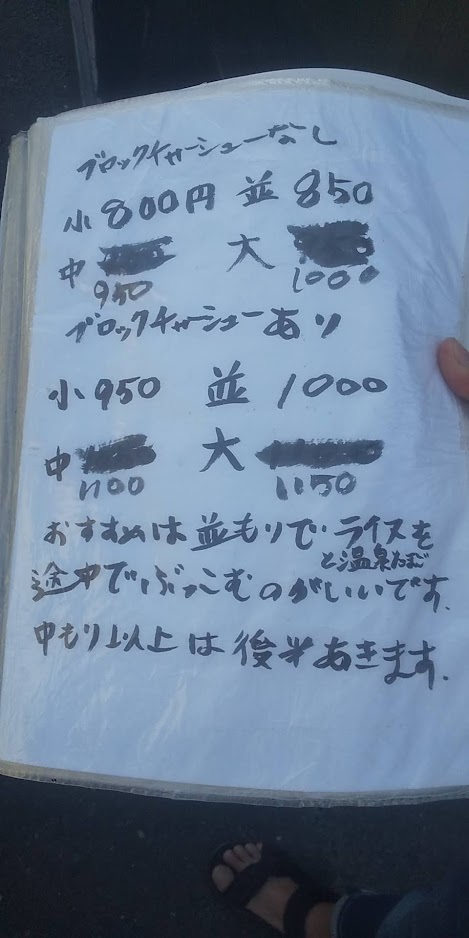 ブロックチャーシューなし
小800円 並850
中 大
950 1000
ブロックチャーシューあり
小950 並1000
中 大
1100 1150
おすすめは並もりで、ライスを
と温泉たまご
途中でぶっこむのがいいです。
中もり以上は後半あきます。